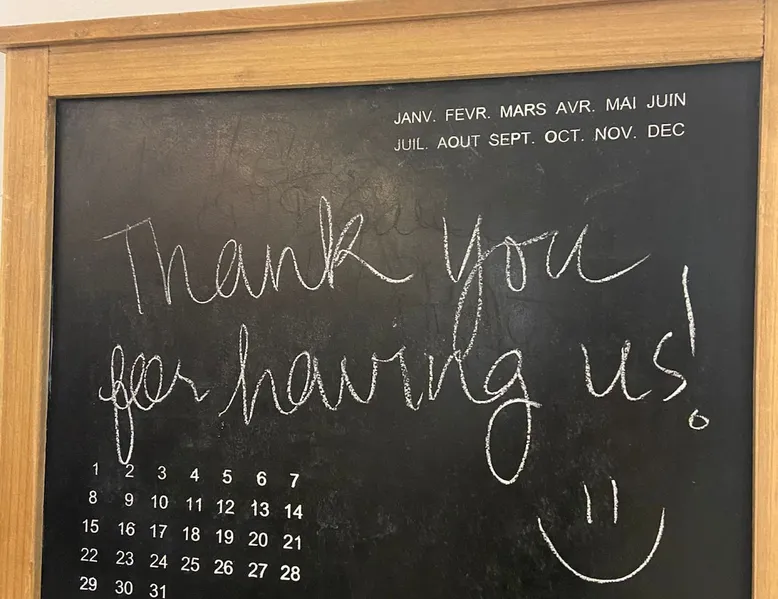 JANV. FEVR. MARS AVR. MAI JUIN
JUIL. AOUT SEPT. OCT. NOV. DEC
Thank you
for having us!
1 2 3 4 5 6 7
8 9 10 11 12 13 14
15 16 17 18 19 20 21
22 23 24 25 26 27 28
29 30 31